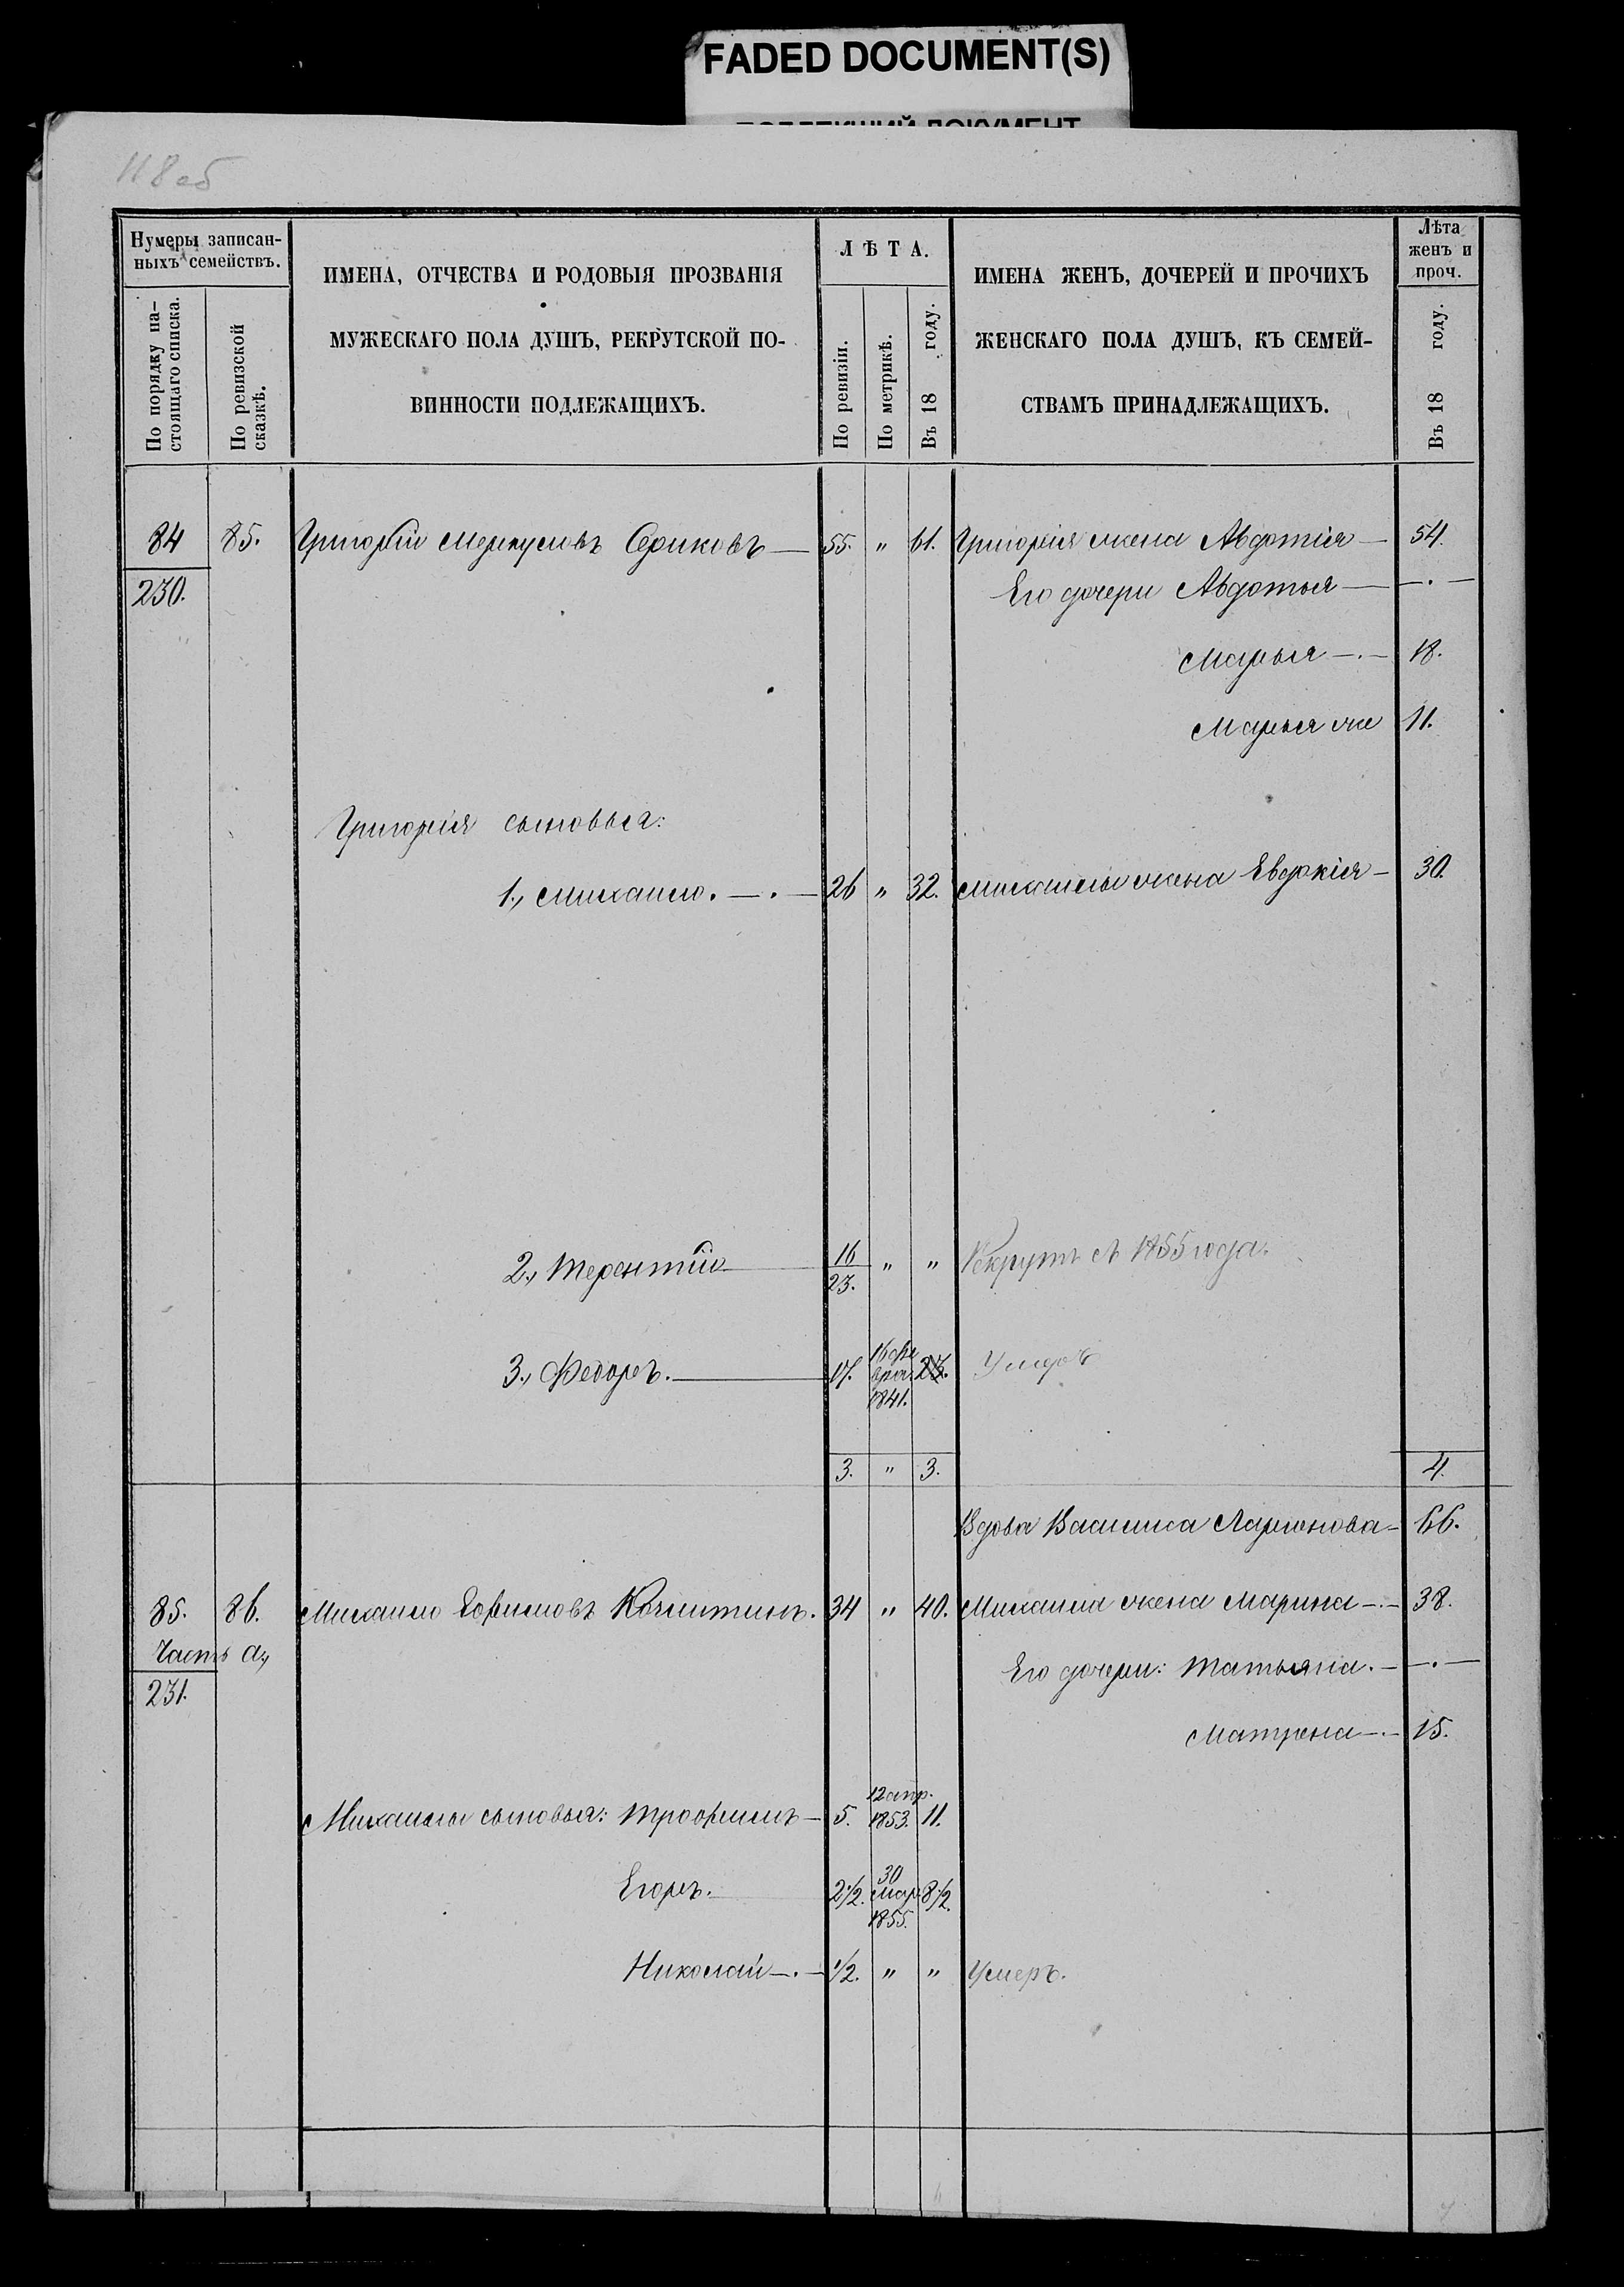 FADED DOCUMENT(S)
118 об
Нумеры записан-
ныхъ семействъ.
По порядку на-
стоящаго списка.
По ревизской
сказкѣ.
ИМЕНА, ОТЧЕСТВА И РОДОВЫЯ ПРОЗВАНІЯ
МУЖЕСКАГО ПОЛА ДУШЪ, РЕКРУТСКОЙ ПО-
ВИННОСТИ ПОДЛЕЖАЩИХЪ.
ЛѢТА.
По ревизіи.
По метрикѣ.
Въ 18 году.
ИМЕНА ЖЕНЪ, ДОЧЕРЕЙ И ПРОЧИХЪ
ЖЕНСКАГО ПОЛА ДУШЪ, КЪ СЕМЕЙ-
СТВАМЪ ПРИНАДЛЕЖАЩИХЪ.
Лѣта
женъ и
проч.
Въ 18 году.
84 85. Григорій Меркуловъ Сериковъ — 55. " 61. Григорія жена Авдотія — 54.
230. Его дочери Авдотья — — . —
Марья — . — 18.
Марья же 11.
Григорія сыновья:
1., Михаило. — . — 26 " 32. Михаилы жена Евдокія — 30.
2., Терентій — 16 " " Рекрутъ съ 1855 года.
23.
3., Федоръ. — 17. 16 фе
враля 1841. 23. Умеръ
3. " 3. 4.
Вдова Василиса Ларионова — 66.
85. 86. Михаило Ефимовъ 34 " 40. Михаила жена Марина — . — 38.
Часть а.,
231. Его дочери: Татьяна. — — . —
Матрена — . — 15.
Михаилы сыновья: Трофимъ — 5. 12 апр. 1853. 11.
Егоръ. 2½. 30 мар. 1855. 8½.
Николай — . — ½. " " Умеръ.